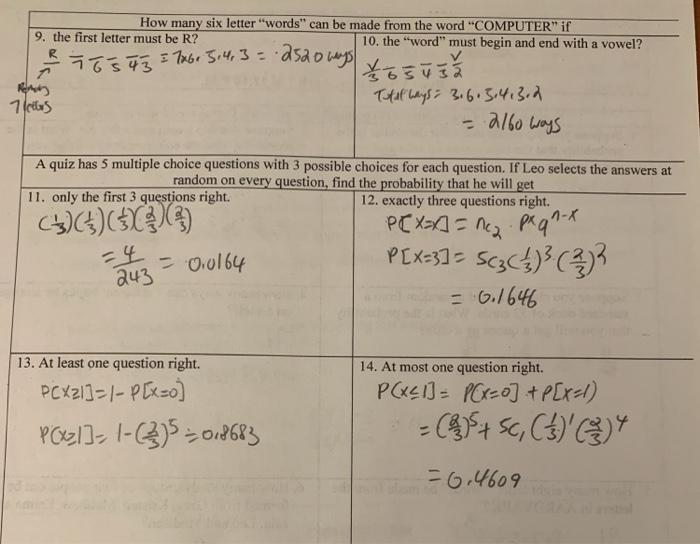 How many six letter “words” can be made from the word “COMPUTER” if
9. the first letter must be R?
R 7 6 5 4 3 = 7x6.5.4.3 = 2520 ways
7 letters
10. the “word” must begin and end with a vowel?
V V
3 6 5 4 3 2
Total ways = 3.6.5.4.3.2
= 2160 ways
A quiz has 5 multiple choice questions with 3 possible choices for each question. If Leo selects the answers at
random on every question, find the probability that he will get
11. only the first 3 questions right.
(1/3)(1/3)(1/3)(2/3)(2/3)
= 4/243 = 0.0164
12. exactly three questions right.
P[X=x] = nc2 . p^x q^n-x
P[X=3] = 5c3 (1/3)^3 (2/3)^2
= 0.1646
13. At least one question right.
P[X≥1] = 1 - P[X=0]
P[X≥1] = 1 - (2/3)^5 = 0.8683
14. At most one question right.
P(X≤1] = P[X=0] + P[X=1)
= (2/3)^5 + 5c1 (1/3)^1 (2/3)^4
= 0.4609